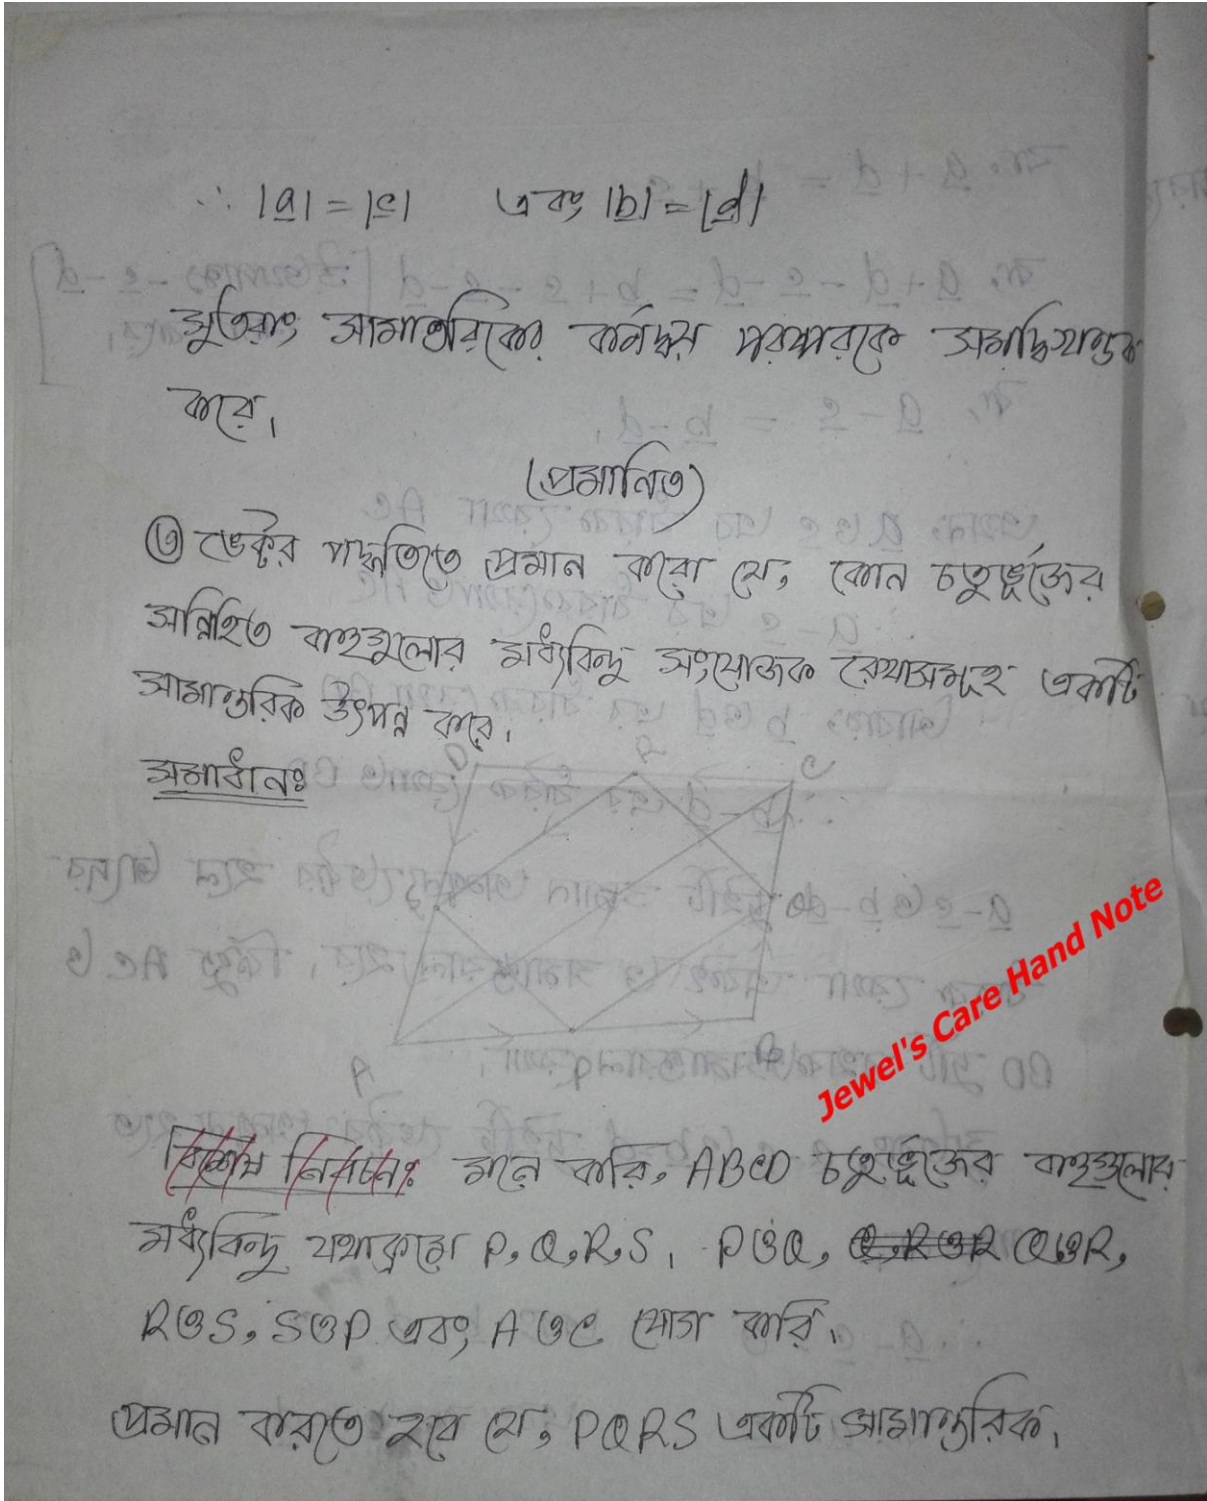 ∴ |a| = |c| এবং |b| = |d|
সুতরাং সামান্তরিকের কর্নদ্বয় পরস্পরকে সমদ্বিখন্ডিত
করে।
(প্রমানিত)
৩ ভেক্টর পদ্ধতিতে প্রমান করো যে, কোন চতুর্ভূজের
সন্নিহিত বাহুগুলোর মধ্যবিন্দু সংযোজক রেখাসমূহ একটি
সামান্তরিক উৎপন্ন করে।
সমাধানঃ
D R C
A P B
Jewel's Care Hand Note
বিশেষ নির্বচনঃ মনে করি, ABCD চতুর্ভূজের বাহুগুলোর
মধ্যবিন্দু যথাক্রমে P, Q, R, S। P ও Q, Q ও R,
R ও S, S ও P এবং A ও C যোগ করি।
প্রমান করতে হবে যে, PQRS একটি সামান্তরিক।